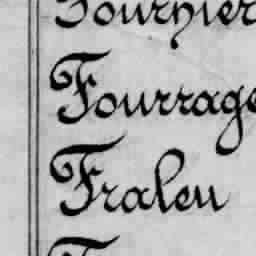 Fournier
Fourrage
Fraleu